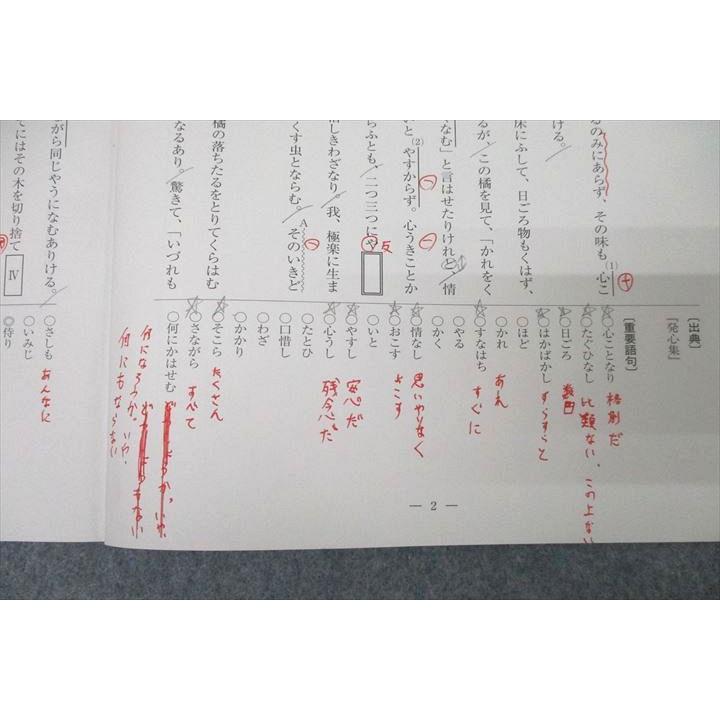 るのみにあらず、その味も、心こ
(1)
ける。
床にふして、日ごろ物もくはず、
るが、この橘を見て、「かれをく
なむ」と言はせたりければ、情
いと やすからず。心うきことか
(2)
らふとも、二つ三つにや
反
惜しきわざなり。我、極楽に生ま
くす虫とならむ。そのいきど
A
橘の落ちたるをとりてくらはむ
なるあり。驚きて、「いづれも
〔出典〕
『発心集』
〔重要語句〕
○心ことなり 格別だ
○たぐひなし 比類ない、この上ない
○日ごろ 数日
○はかばかし すらすらと
○ほど
○かれ あれ
○すなはち すぐに
○やる
○かく
○情なし 思いやりなく
○おこす よこす
○いと
○やすし 安心だ
○心うし 残念だ
○たとひ
○口惜し
○わざ
○かかり
○そこら たくさん
○さながら すべて
○何にかはせむ
何になろうか。いや、
何にもならない
— 2 —
がら同じやうになむありける。
てにはその木を切り捨て
IV
○さしも あんなに
○いみじ
◎侍り